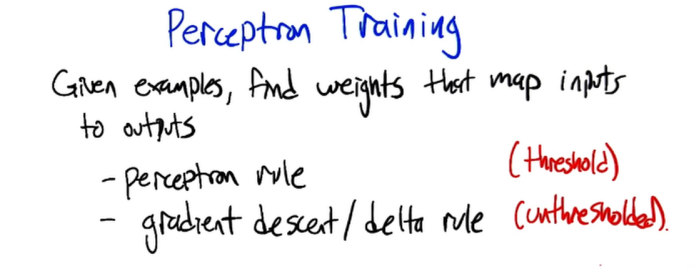 Perceptron Training
Given examples, find weights that map inputs
to outputs
- perceptron rule (threshold)
- gradient descent / delta rule (unthresholded).